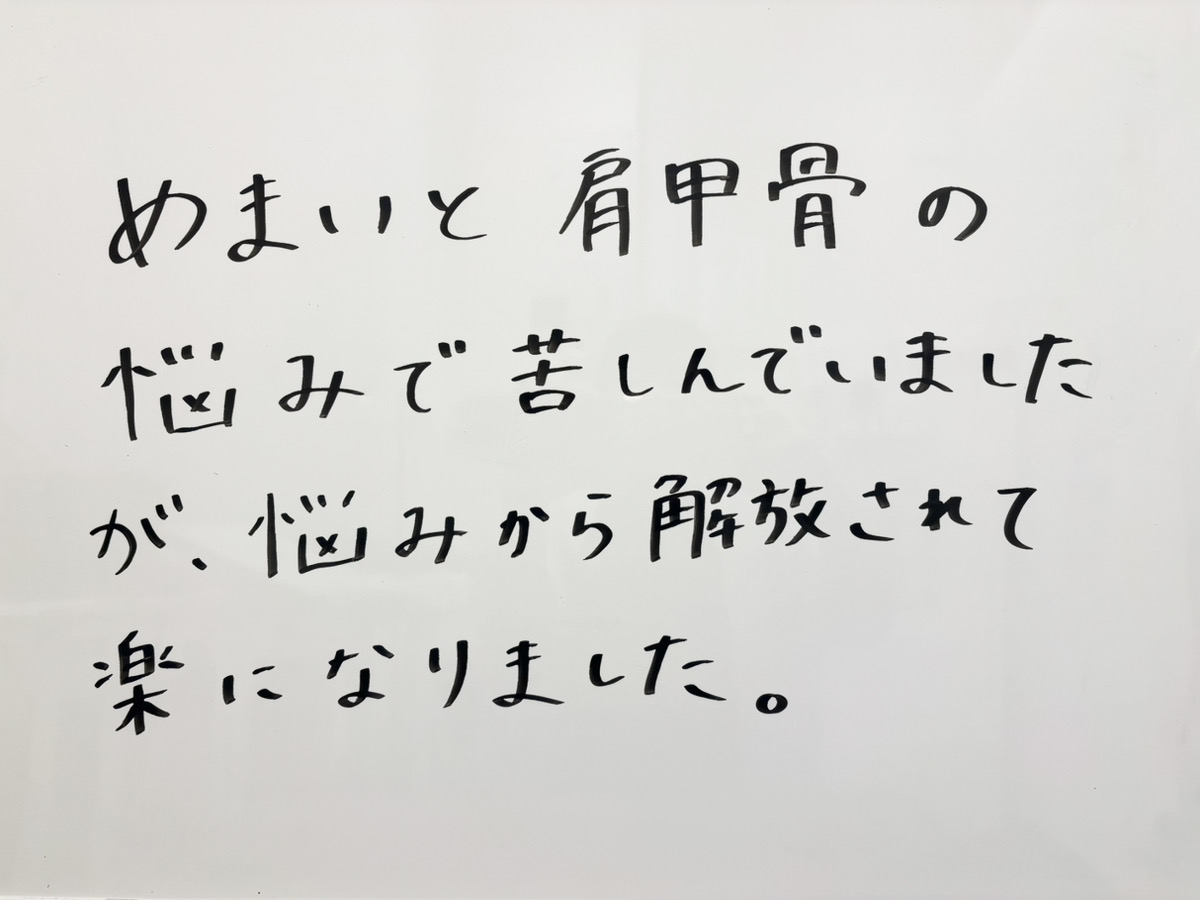 めまいと肩甲骨の
悩みで苦しんでいました
が、悩みから解放されて
楽になりました。